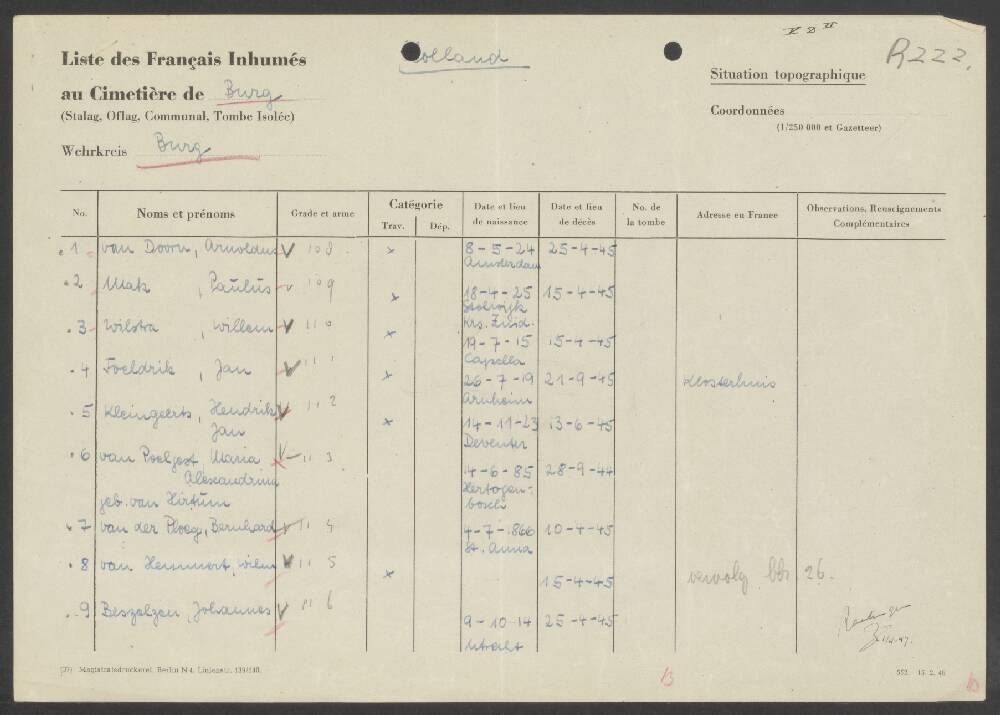 Liste des Français Inhumés
Holland
R222.
au Cimetière de Burg
Situation topographique
(Stalag, Oflag, Communal, Tombe Isolée)
Coordonnées
(1/250 000 et Gazetteer)
Wehrkreis Burg
No. Noms et prénoms Grade et arme Catégorie Trav. Dép. Date et lieu de naissance Date et lieu de décès No. de la tombe Adresse en France Observations, Renseignements Complémentaires
1 van Doorn, Arnoldus 108 x 8-5-24 25-4-45
Amsterdam
2 Mak, Paulus 109 x 18-4-25 15-4-45
Stolwijk
Krs. Zuid.
3 Wilstra, Willem 110 x 19-7-15 15-4-45
Capella
4 Foeldrik, Jan 111 x 26-7-19 21-9-45 Klosterhuis
Arnheim
5 Kleingeerts, Hendrik 112 x 14-11-23 13-6-45
Jan
Deventer
6 van Poelgest, Maria 113 4-6-85 28-9-44
Alexandrina
Hertogen-
bosch
geb. van Hirtum
7 van der Ploeg, Bernhard 114 4-7-866 10-4-45
St. Anna
8 van Hemmert, Wilm 115 x 15-4-45 vervolg bdz 26.
9 Beszelzen, Johannes 116 9-10-14 25-4-45
Utrecht
(27) Magistratsdruckerei, Berlin N 4, Linienstr. 139/140.
552 15. 2. 46
B